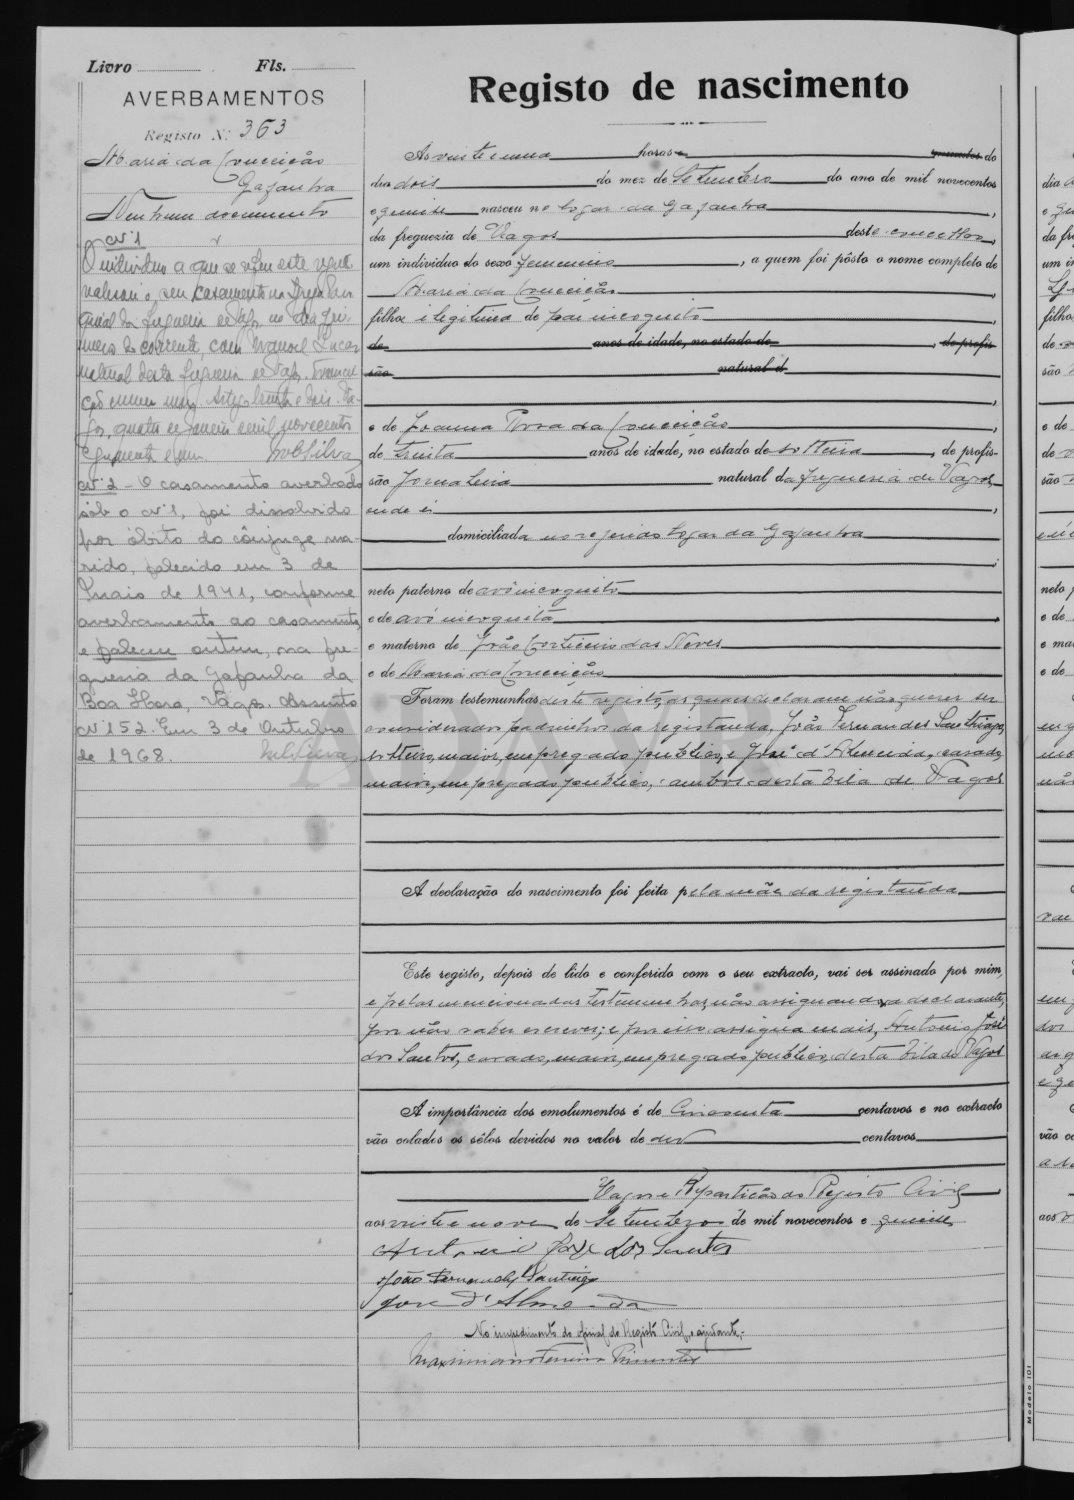 Livro Fls.
AVERBAMENTOS
Registo N.º 363
Maria da Conceição
Gafanha
Nenhum documento
Nº 1
O individuo a que se refere este regist
realisou o seu casamento na Igreja Paro
quial da freguesia de Vagos no dia pri
meiro do corrente, com Manoel
natural desta freguesia de Vagos.
numero trinta e dois. Va
gos, quatro de janeiro de mil novecentos
e quarenta e um
Nº 2 - O casamento averbado
sôb o nº 1, foi dissolvido
por óbito do cônjuge ma-
rido, falecido em 3 de
Maio de 1941, conforme
averbamento ao casamento,
e faleceu outem, na fre-
guesia da Gafanha da
Boa Hora, Vagos. Assento
nº 152. Em 3 de Outubro
de 1968.
Registo de nascimento
As vinte e uma horas e minutos do
dia dois do mez de Setembro do ano de mil novecentos
e quinze nasceu no logar da Gafanha,
da freguezia de Vagos deste concelho,
um individuo do sexo femenino, a quem foi pôsto o nome completo de
Maria da Conceição,
filha ilegitima de pai incognito,
de anos de idade, no estado de, de profis-
são natural d
e de Joanna Rosa da Conceição,
de trinta anos de idade, no estado de solteira, de profis-
são Jornaleira natural da freguesia de Vagos,
onde é,
domiciliada no referido logar da Gafanha;
neto paterno de avô incognito
e de avó incognita,
e materno de João Corticeiro das Neves
e de Maria da Conceição
Foram testemunhas deste registo, as quaes declaram não querer ser
considerados padrinhos da registanda, João Fernandes Santhiago,
solteiro, maior, empregado publico, e José d'Almeida, casado,
maior, empregado publico, ambos desta Vila de Vagos
A declaração do nascimento foi feita pela mãe da registanda
Este registo, depois de lido e conferido com o seu extracto, vai ser assinado por mim,
e pelas mencionadas testemunhas, não assignando a declarante,
por não saber escrever; e por isso assigna mais, Antonio José
dos Santos, casado, maior, empregado publico, desta Vila de Vagos
A importância dos emolumentos é de Cincoenta centavos e no extracto
vão colados os sêlos devidos no valor de dez centavos
Vagos e Repartição do Registo Civil,
aos vinte e nove de Setembro de mil novecentos e quinze
Antonio José dos Santos
João Fernandes Santiago
José d'Almeida
No impedimento do oficial do Registo Civil, o ajudante,
Maximiano Ferreira Pimentel
Modelo 101